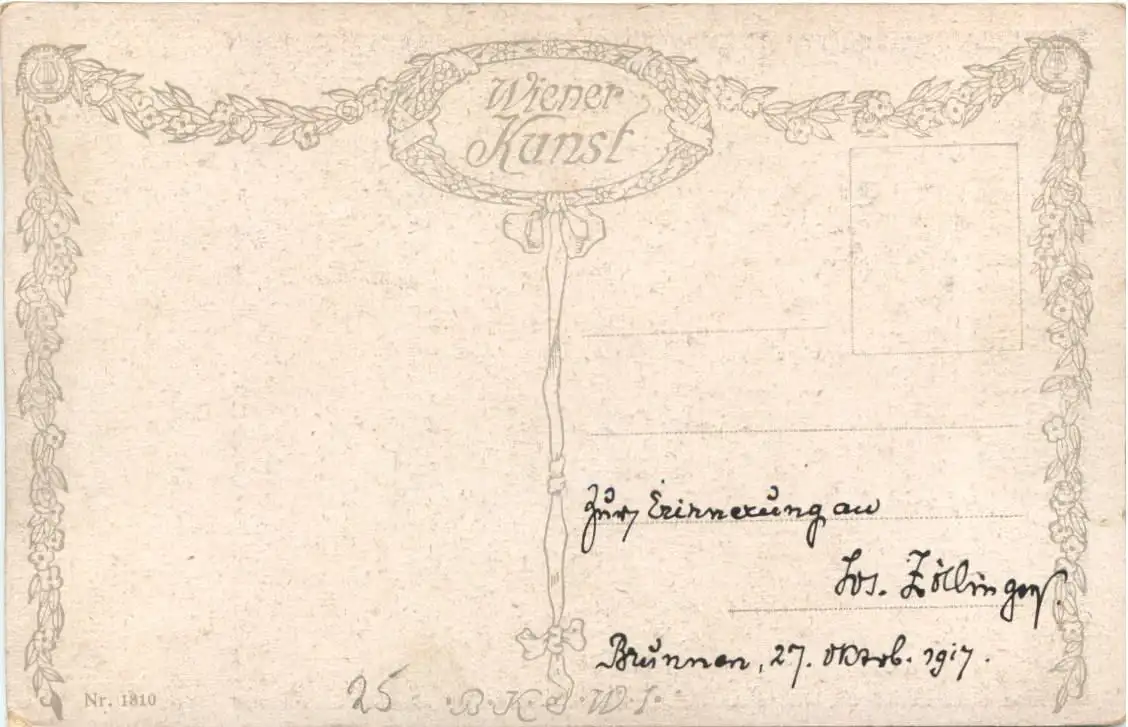 Wiener
Kunst
Zur Erinnerung an
Jos. Zöllinger.
Brunnen, 27. Oktob. 1917.
Nr. 1810
25
B.K.W.I.